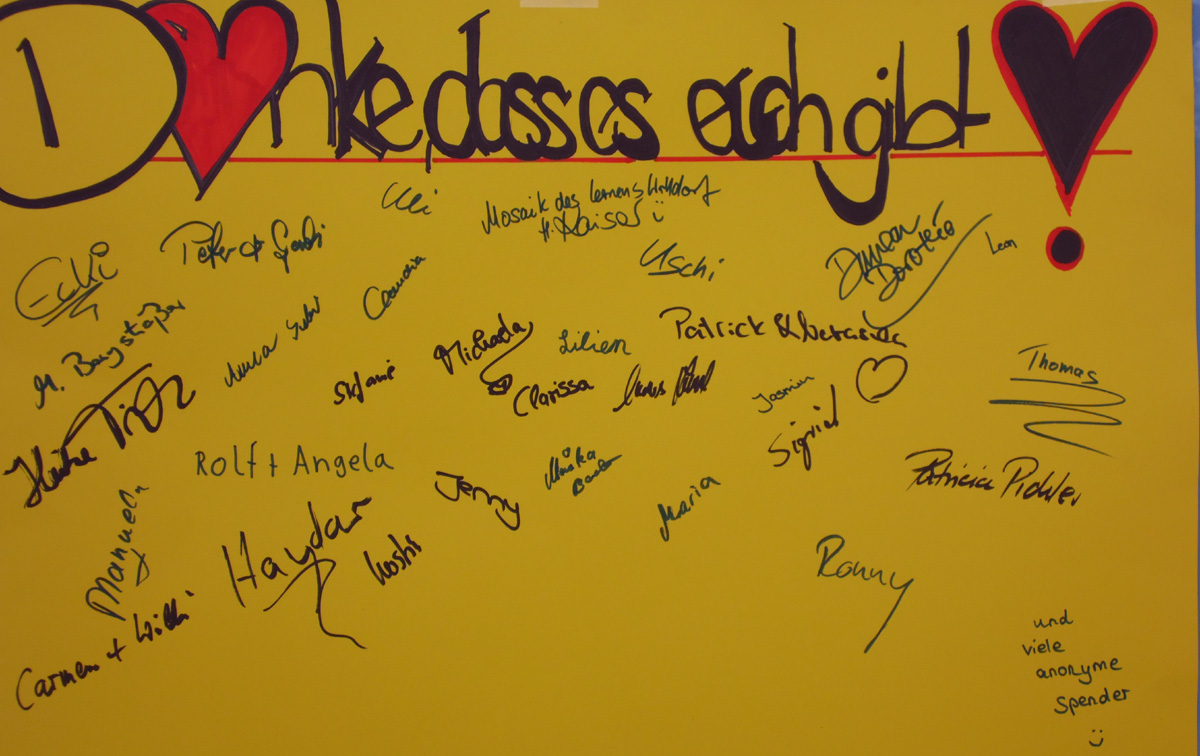 Danke, dass es euch gibt!
Uli
Mosaik des lernens Willdorf
H. Kaiser
Ecki
Peter + Gabi
Claudia
Uschi
Duncan
Dorothée
Leon
M.
Michaela
Lilien
Patrick &
Stefanie
Clarissa
Jasmin
Thomas
Heike
Rolf + Angela
Jenny
Sigrid
Patricia Pichler
Manuela
Haydar
Koshi
Maria
Ronny
Carmen + Willi
und
viele
anonyme
Spender